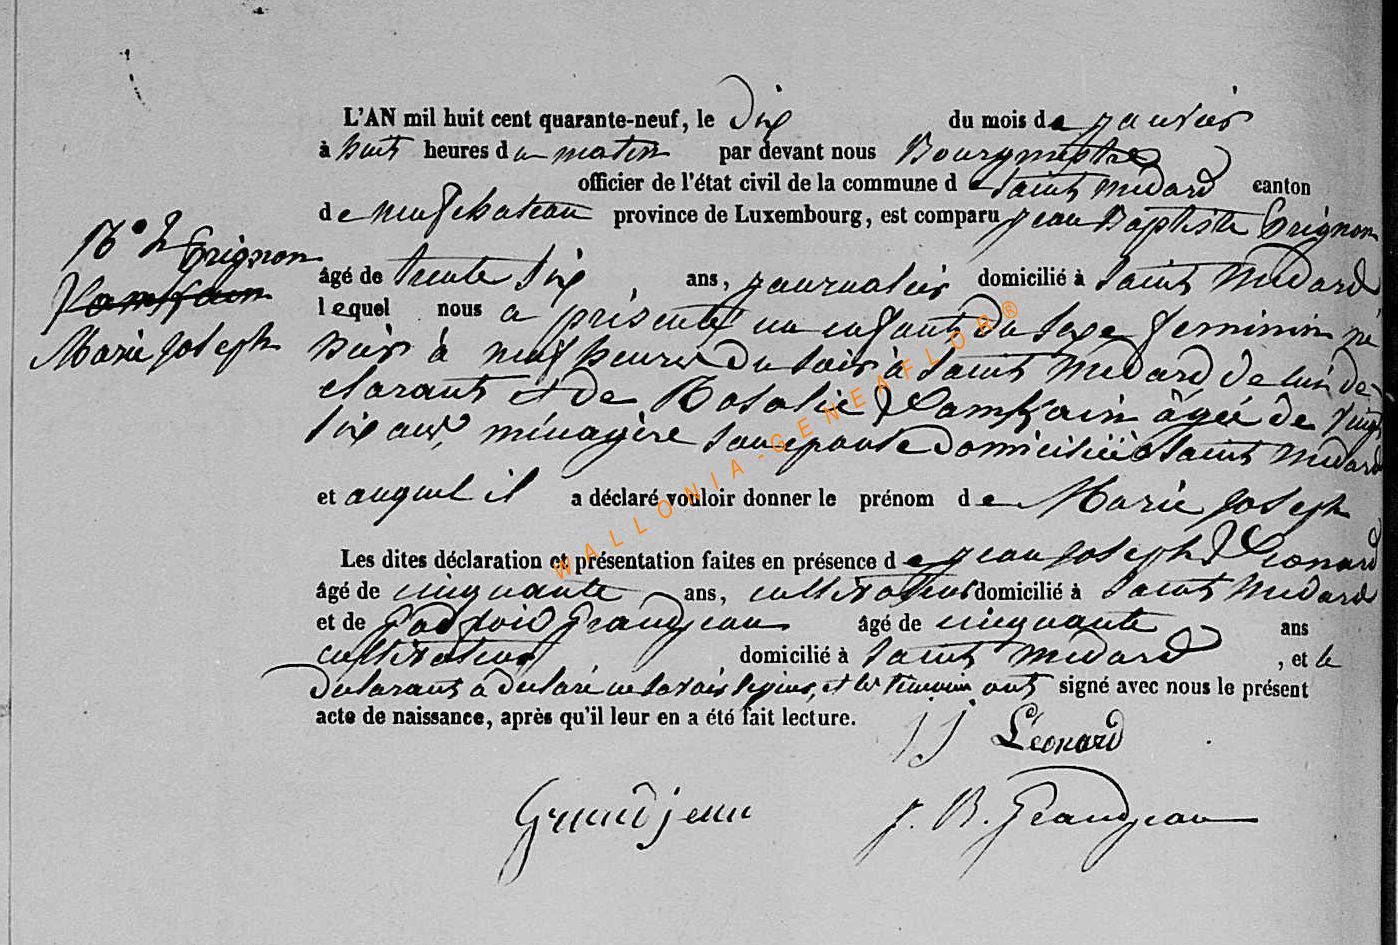 L'AN mil huit cent quarante-neuf, le dix du mois de janvier
à huit heures du matin par devant nous Bourgmestre
officier de l'état civil de la commune de Saint Médard canton
de neufchateau province de Luxembourg, est comparu jean Baptiste Grignon
N° 2 Grignon
âgé de trente six, ans, journalier domicilié à Saint Médard
Marie joseph
lequel nous a présenté un enfant du sexe feminin né
hier à neuf heures du soir à Saint Médard de lui dé-
clarant et de Rosalie âgée de vingt
six ans, ménagère son epouse domiciliée à Saint Médard
et auquel il a déclaré vouloir donner le prénom de Marie joseph
Les dites déclaration et présentation faites en présence de jean joseph Léonard
âgé de cinquante ans, cultivateur domicilié à Saint Médard
et de Grandjean âgé de cinquante ans
cultivateur domicilié à Saint Médard, et le
declarant a declaré ne savoir signer, et les temoins ont signé avec nous le présent
acte de naissance, après qu'il leur en a été fait lecture.
JJ Léonard
Grandjean
J. B. Grandjean
WALLONIA-GENEAFLOR®